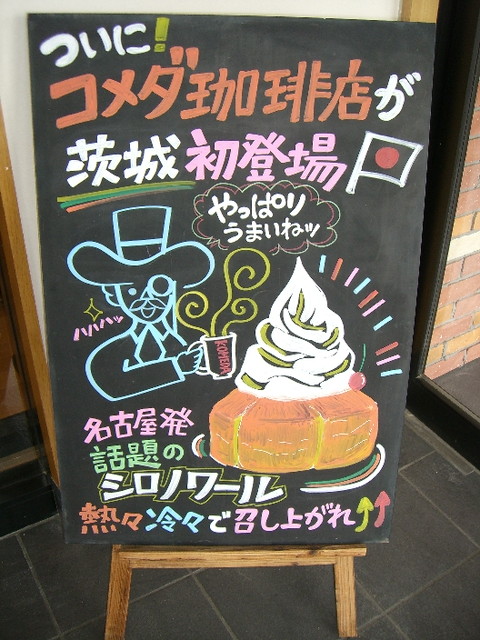 ついに!
コメダ珈琲店が
茨城初登場
やっぱり
うまいねッ
ハハハッ
KOMEDA
名古屋発
話題の
シロノワール
熱々冷々で召し上がれ↑↑